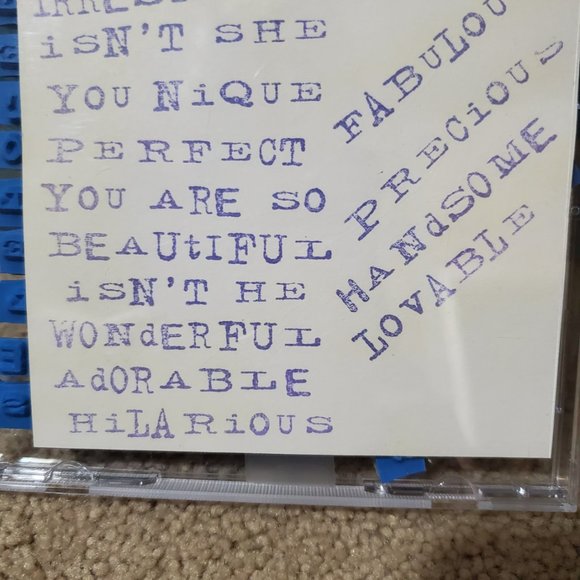 isN'T SHE
YOU NiQUE
PERFECT
YOU ARE SO
BEAUtIFUL
isN'T HE
WONdERFUL
AdORABLE
HiLARiOUS
PRECiOUS
HANdSOME
LOvABLE